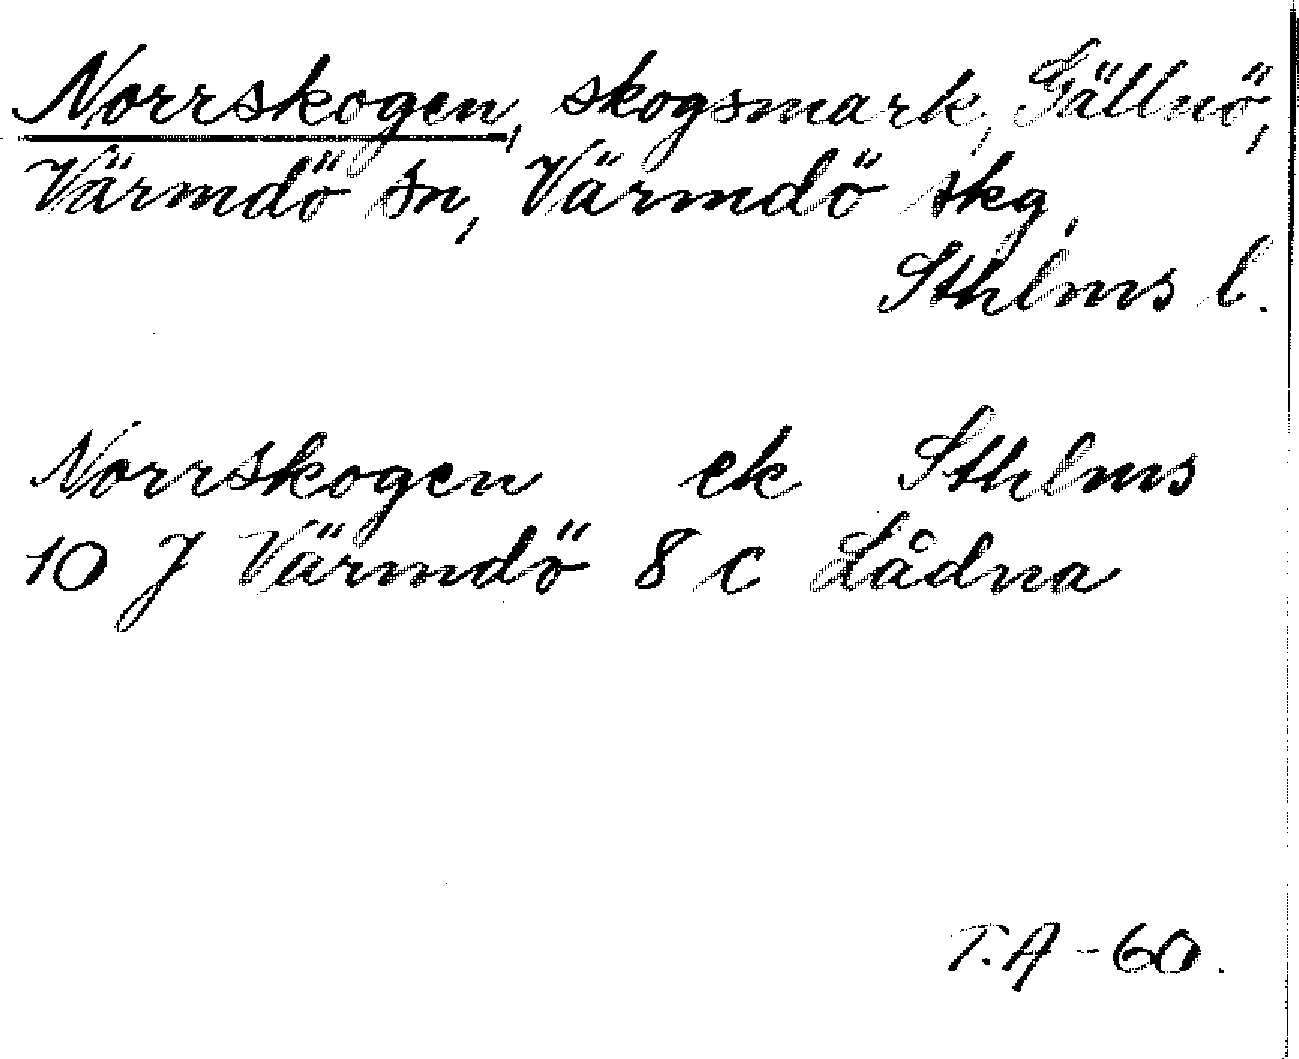 Norrskogen, skogsmark, Gällnö,
Värmdö sn, Värmdö skg,
Sthlms l.
Norrskogen ek Sthlms
10 J Värmdö 8 c Lådna
T.A -60.